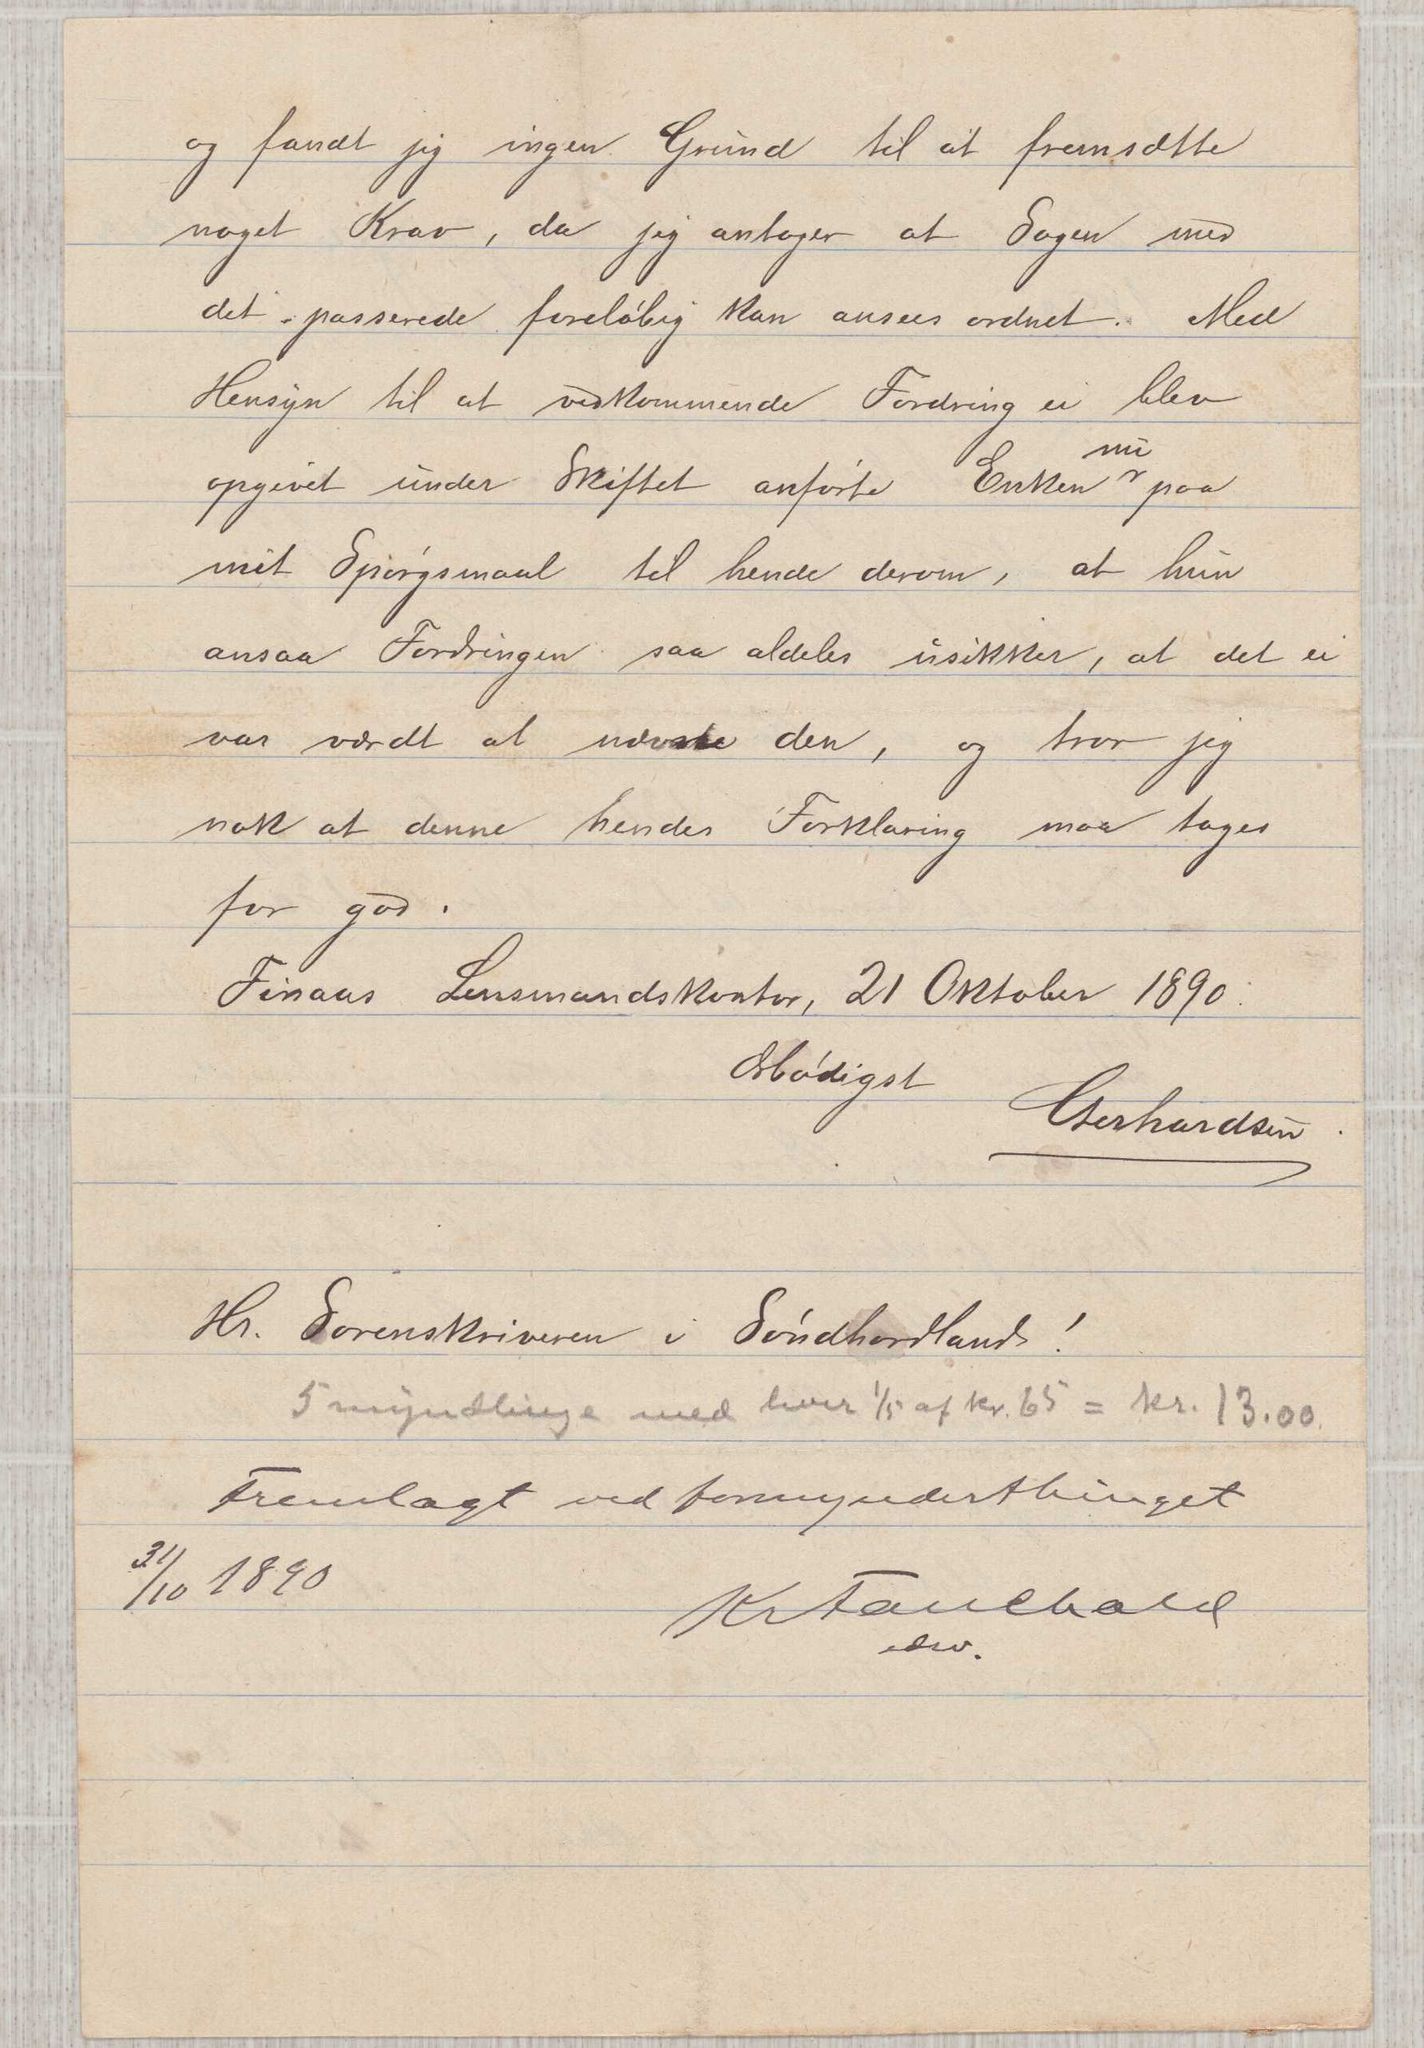 og fandt jeg ingen Grund til at fremsætte
noget Krav, da jeg antager at Sagen med
det passerede foreløbig kan ansees ordnet. Med
Hensyn til at vedkommende Fordring ei blev
opgivet under Skiftet anførte Enken nu paa
mit Spørgsmaal til hende derom, at hun
ansaa Fordringen saa aldeles usikker, at det ei
var værdt at nævne den, og tror jeg
nok at denne hendes Forklaring maa tages
for god.
Finaas Lensmandskontor, 21 Oktober 1890.
Ærbødigst
Gerhardsen.
Hr. Sorenskriveren i Søndhordland!
5 myndlinge med hver 1/5 af kr. 65 = kr. 13.00.
Fremlagt ved formynderthinget
31/10 1890
Kr Fauchald